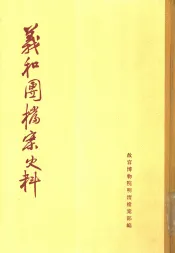 義和團檔案史料
故宮博物院明清檔案部編